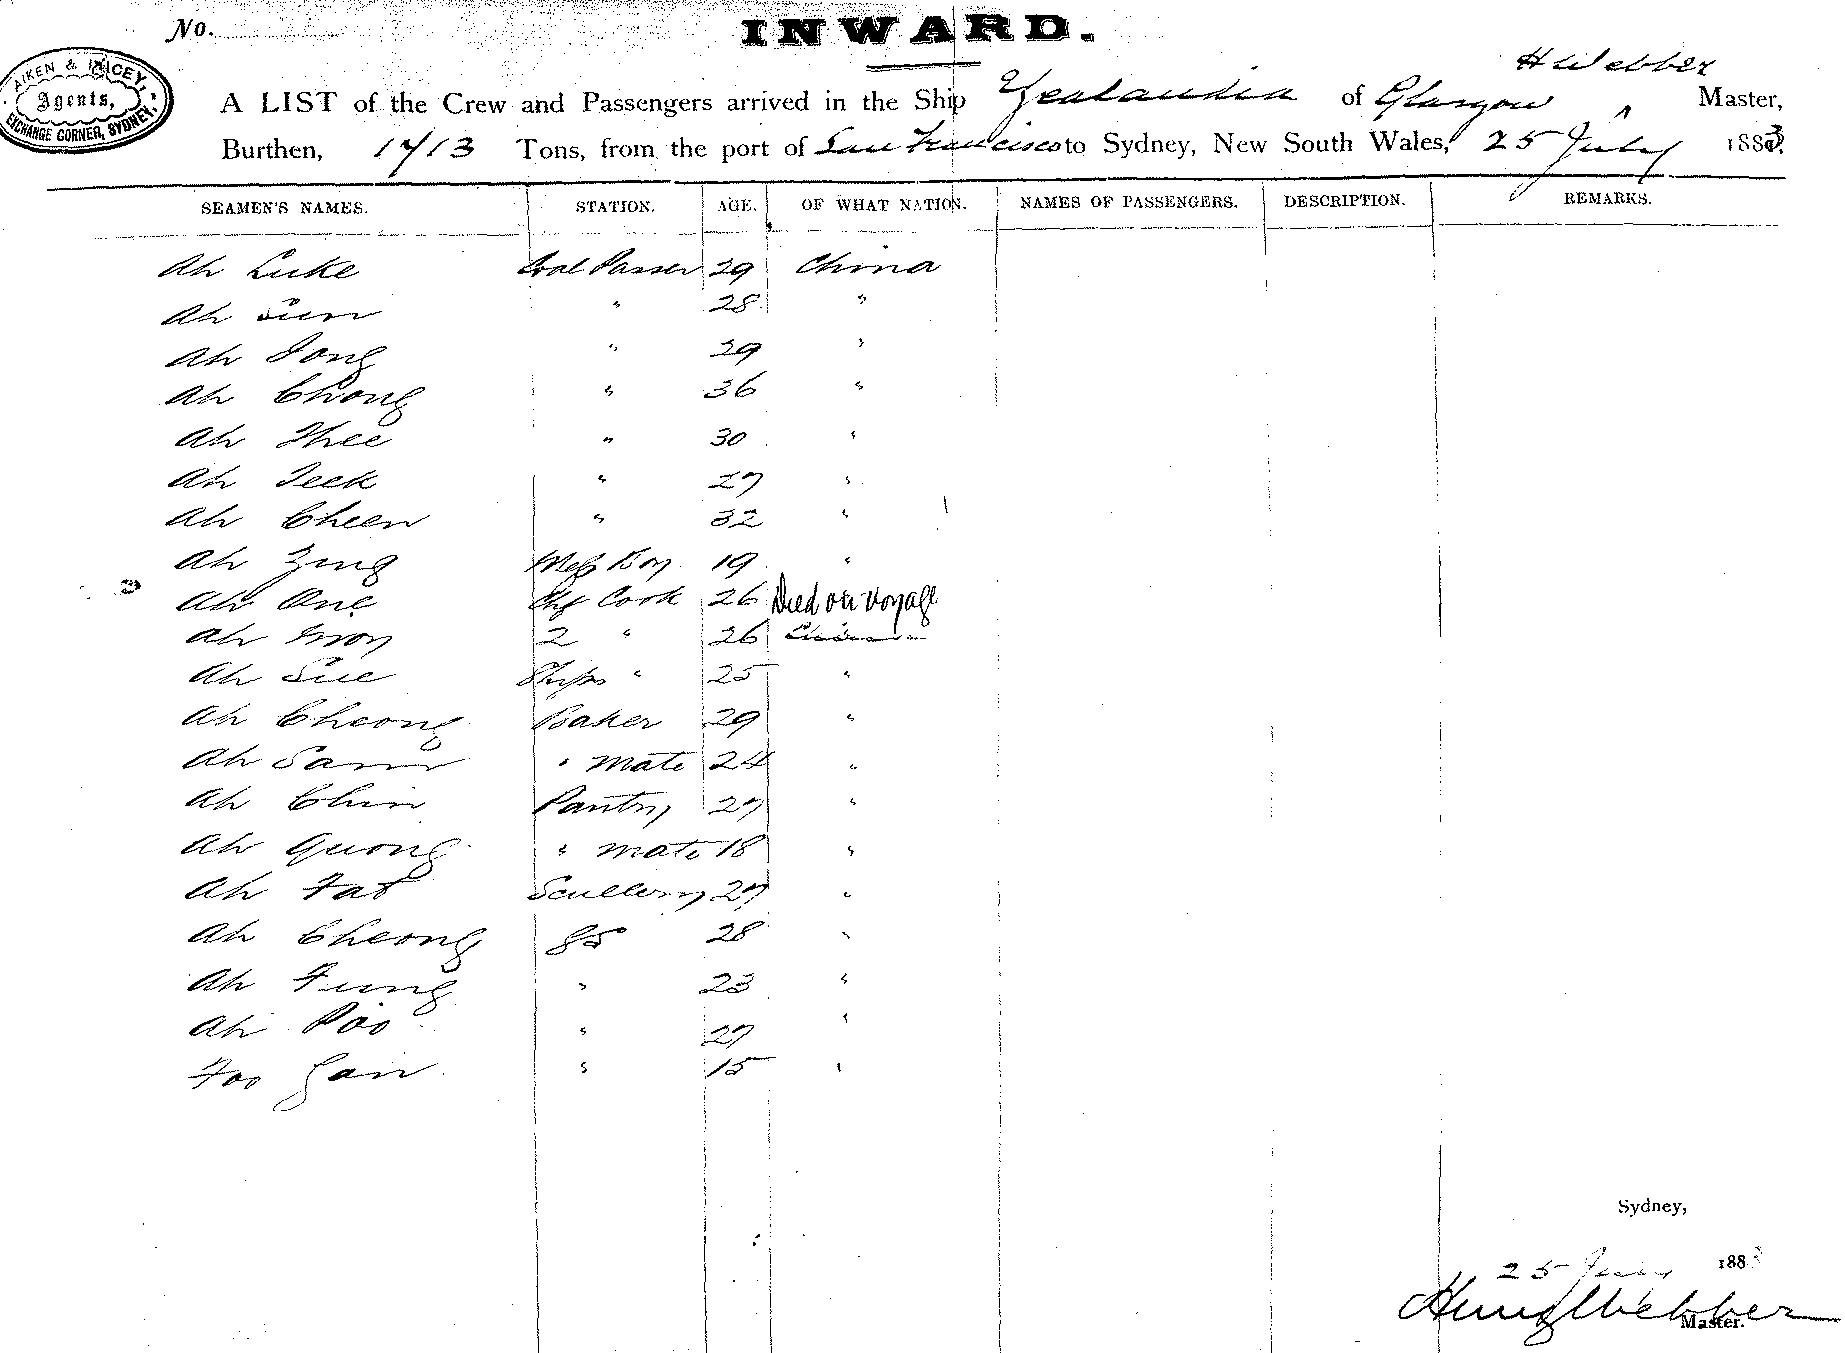 No.
INWARD.
AIKEN & LACEY,
Agents,
EXCHANGE CORNER, SYDNEY.
H Webber
A LIST of the Crew and Passengers arrived in the Ship Zealandia of Glasgow ^ Master,
Burthen, 1713 Tons, from the port of San Francisco to Sydney, New South Wales, 25 July 1883.
SEAMEN'S NAMES. STATION. AGE. OF WHAT NATION. NAMES OF PASSENGERS. DESCRIPTION. REMARKS.
Ah Luke Coal Passer 29 China
Ah Sun " 28 "
Ah Tong " 29 "
Ah Chong " 36 "
Ah Thee " 30 "
Ah Teek " 27 "
Ah Cheen " 32 "
Ah Zung Mess Boy 19 "
Ah One Chf Cook 26 Died on voyage
Ah 2 " 26 China
Ah Sue Ships " 25 "
Ah Cheong Baker 29 "
Ah Sam " mate 24 "
Ah Chin Pantry 27 "
Ah Quong " mate 18 "
Ah Fat Scullery 27 "
Ah Cheong 28 "
Ah Fung " 23 "
Ah Poo " 27 "
Foo Gan " 15 "
Sydney,
25 July 1883
Henry Webber
Master.